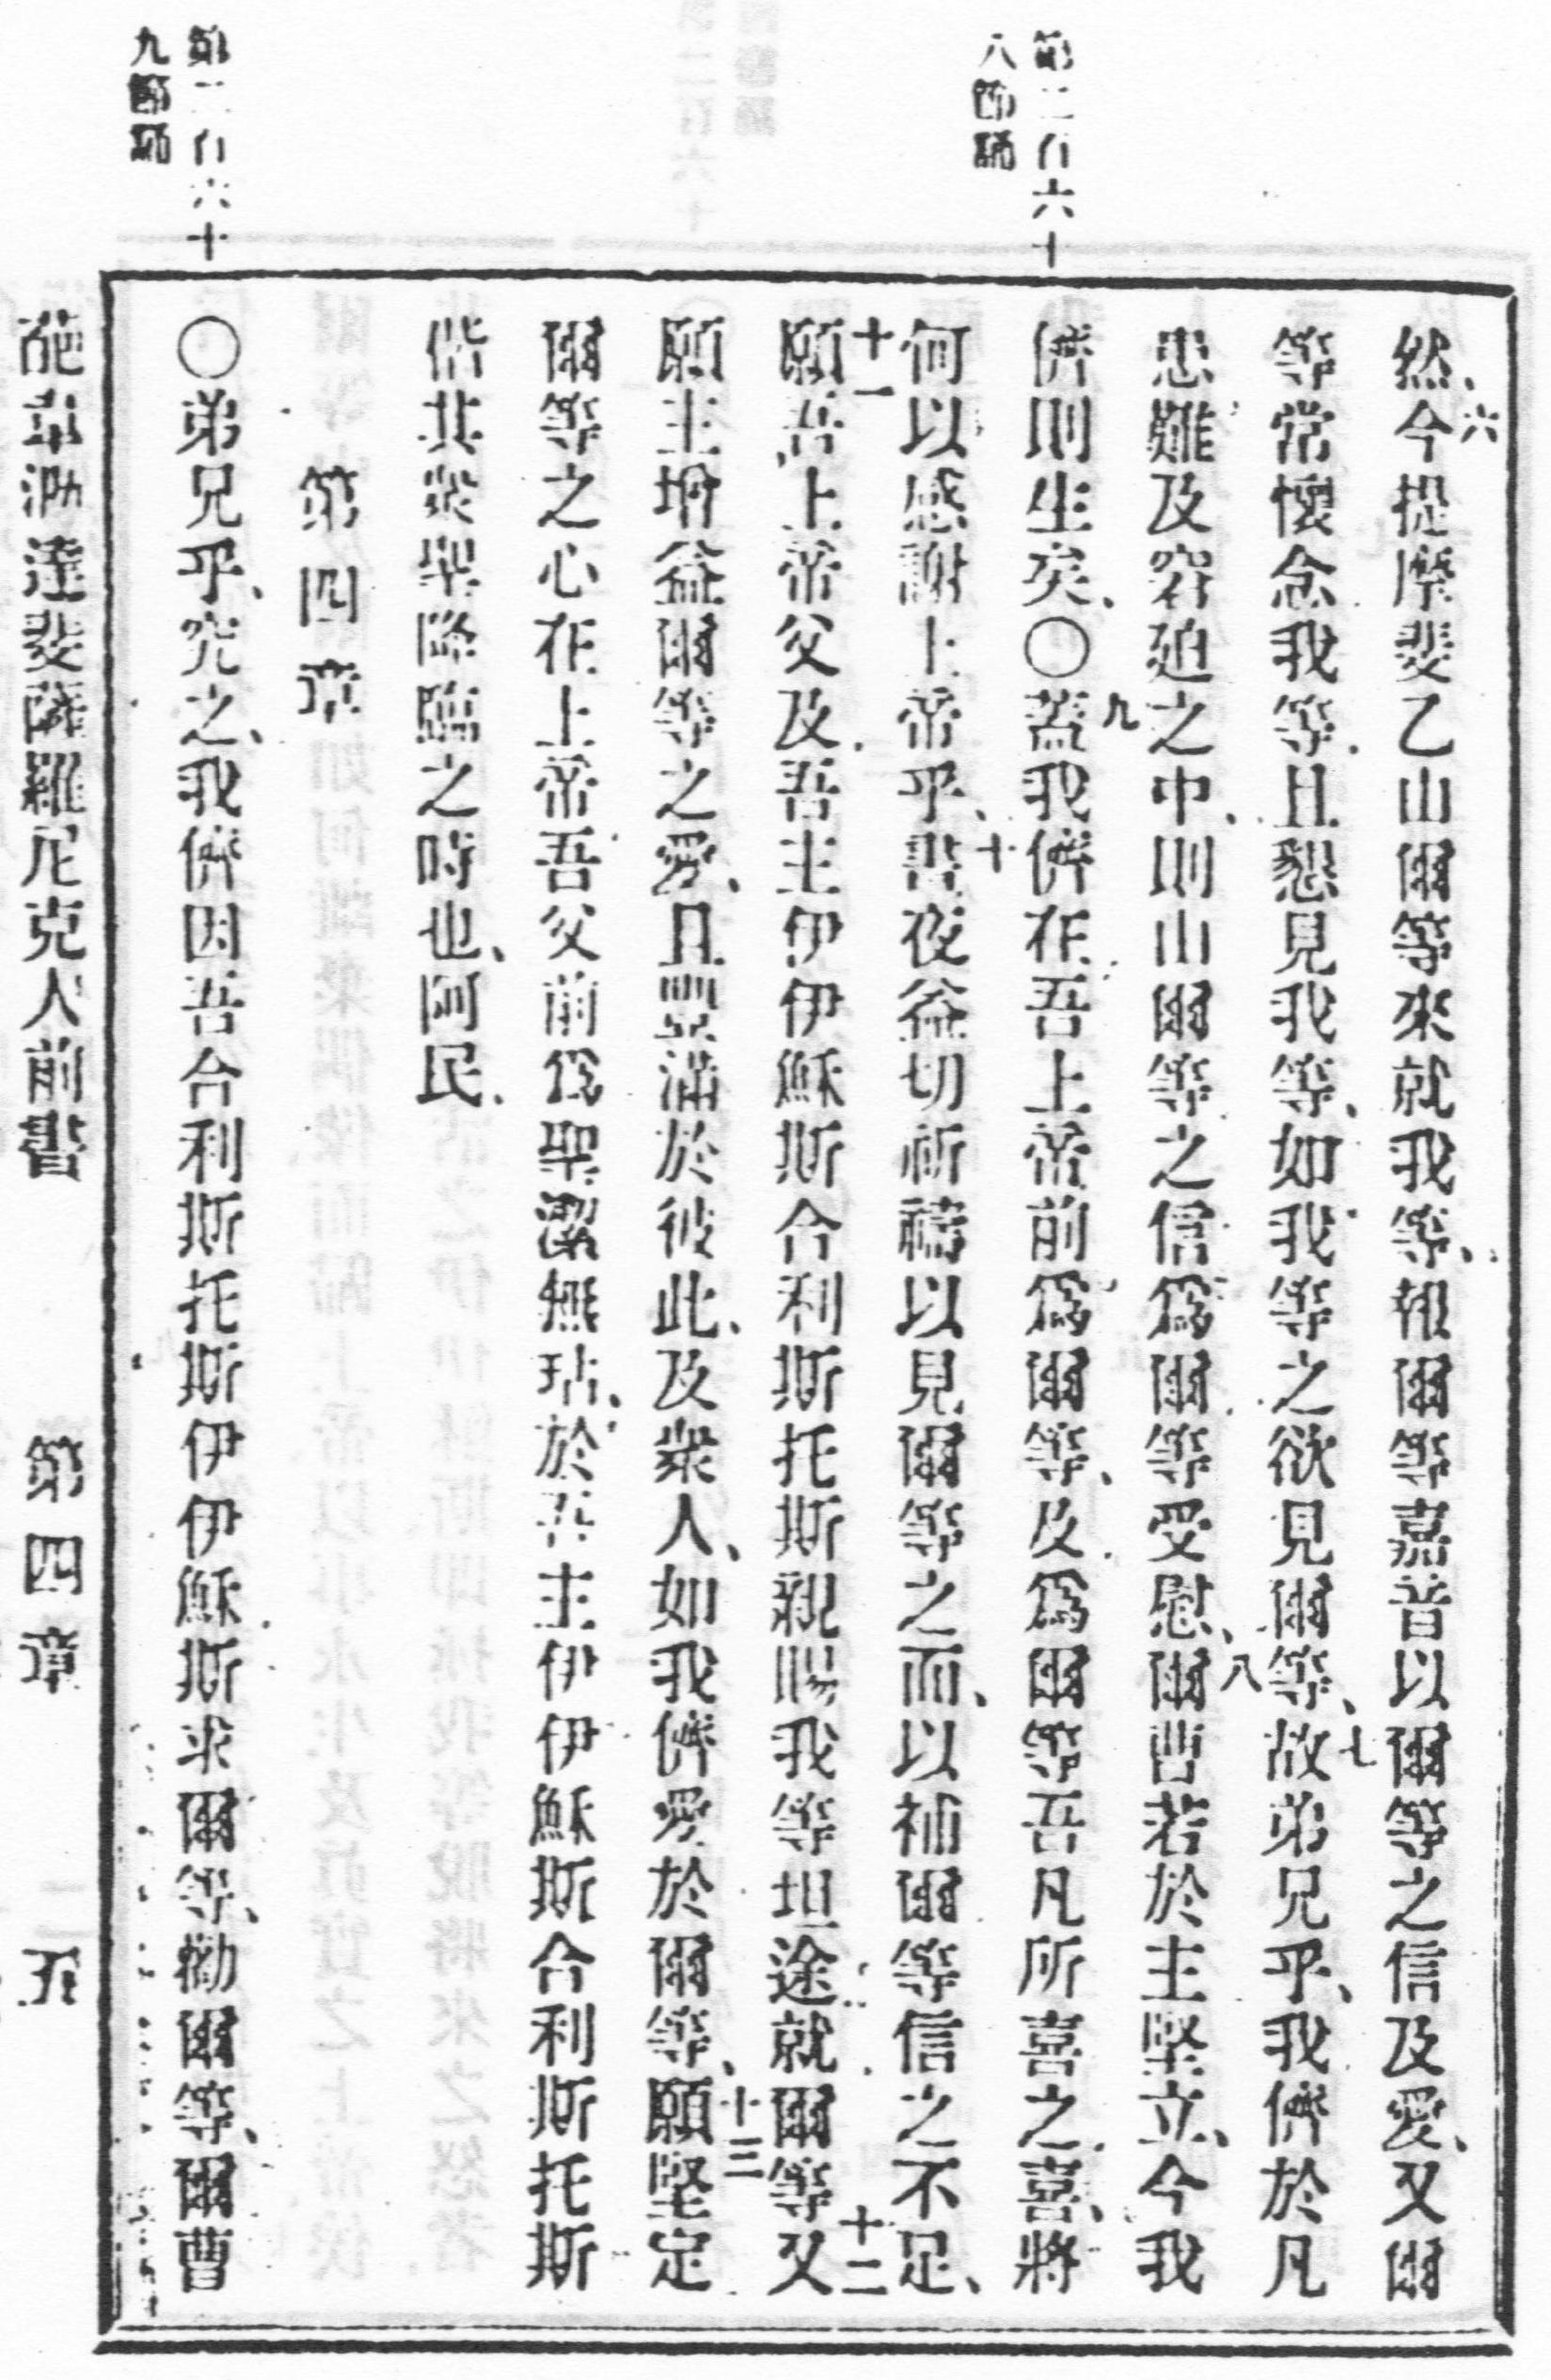 第二百六十
八節誦
第二百六十
九節誦
然、六今提摩斐乙由爾等來就我等、報爾等嘉音以爾等之信及愛、又爾
等常懷念我等、且懇見我等、如我等之欲見爾等、七故弟兄乎、我儕於凡
患難及窘迫之中、則由爾等之信爲爾等受慰、八爾曹若於主堅立、今我
儕則生矣、〇九蓋我儕在吾上帝前爲爾等、及爲爾等吾凡所喜之喜、將
何以感謝上帝乎、十晝夜益切祈禱以見爾等之面、以補爾等信之不足、
十一願吾上帝父及吾主伊伊穌斯合利斯托斯親賜我等坦途就爾等、十二又
願主增益爾等之愛、且豐滿於彼此、及衆人、如我儕愛於爾等、十三願堅定
爾等之心在上帝吾父前爲聖潔無玷、於吾主伊伊穌斯合利斯托斯
偕其衆聖降臨之時也、阿民、
第四章
〇弟兄乎、究之、我儕因吾合利斯托斯伊伊穌斯求爾等、勸爾等、爾曹
達斐薩羅尼克人前書
第四章
五